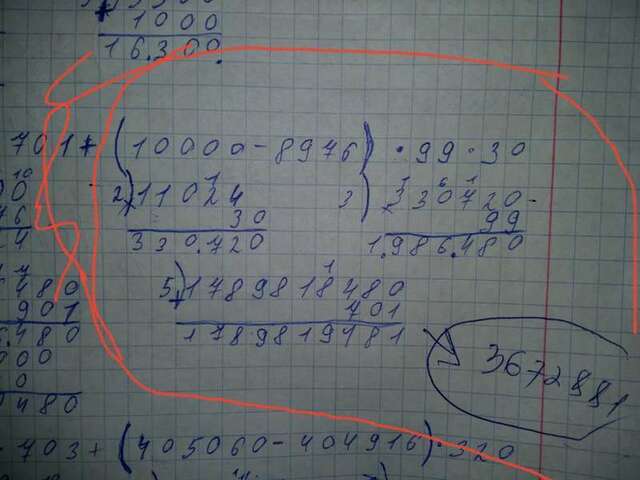 1000
16.300
701+(10000-8976)·99·30
2) 11024 3) 330720
30 99
330.720 1.986.480
5) 1789818480
480
901 701
480 1789819181
3672881
480
703+(405060-404916)·320